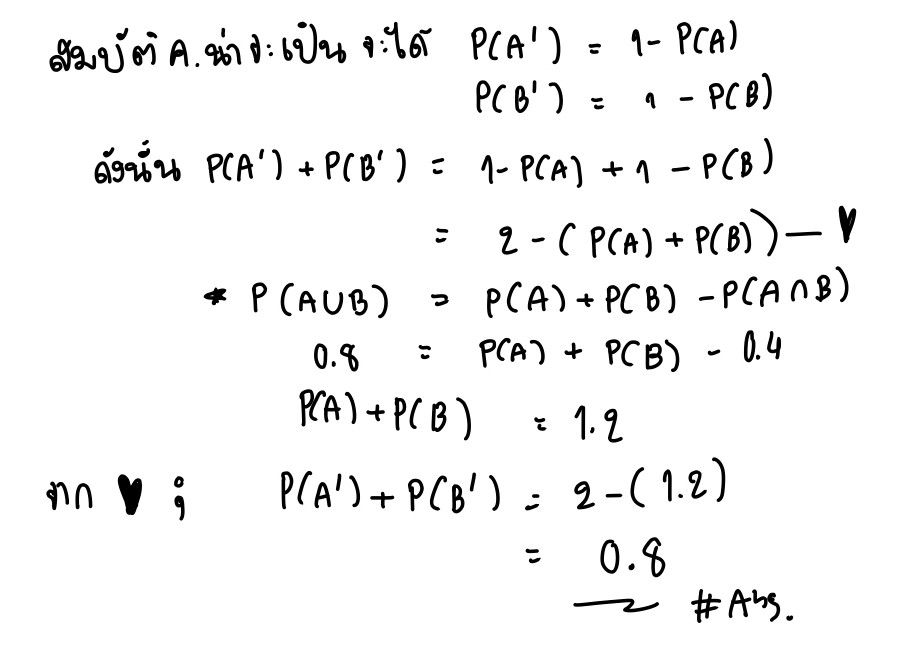 สมบัติ ค.น่าจะเป็น จะได้ P(A') = 1- P(A)
P(B') = 1 - P(B)
ดังนั้น P(A') + P(B') = 1- P(A) + 1 - P(B)
= 2 - ( P(A) + P(B) ) — ♥
* P(A∪B) = P(A) + P(B) - P(A∩B)
0.8 = P(A) + P(B) - 0.4
P(A) + P(B) = 1.2
จาก ♥ ; P(A') + P(B') = 2 - (1.2)
= 0.8
#Ans.